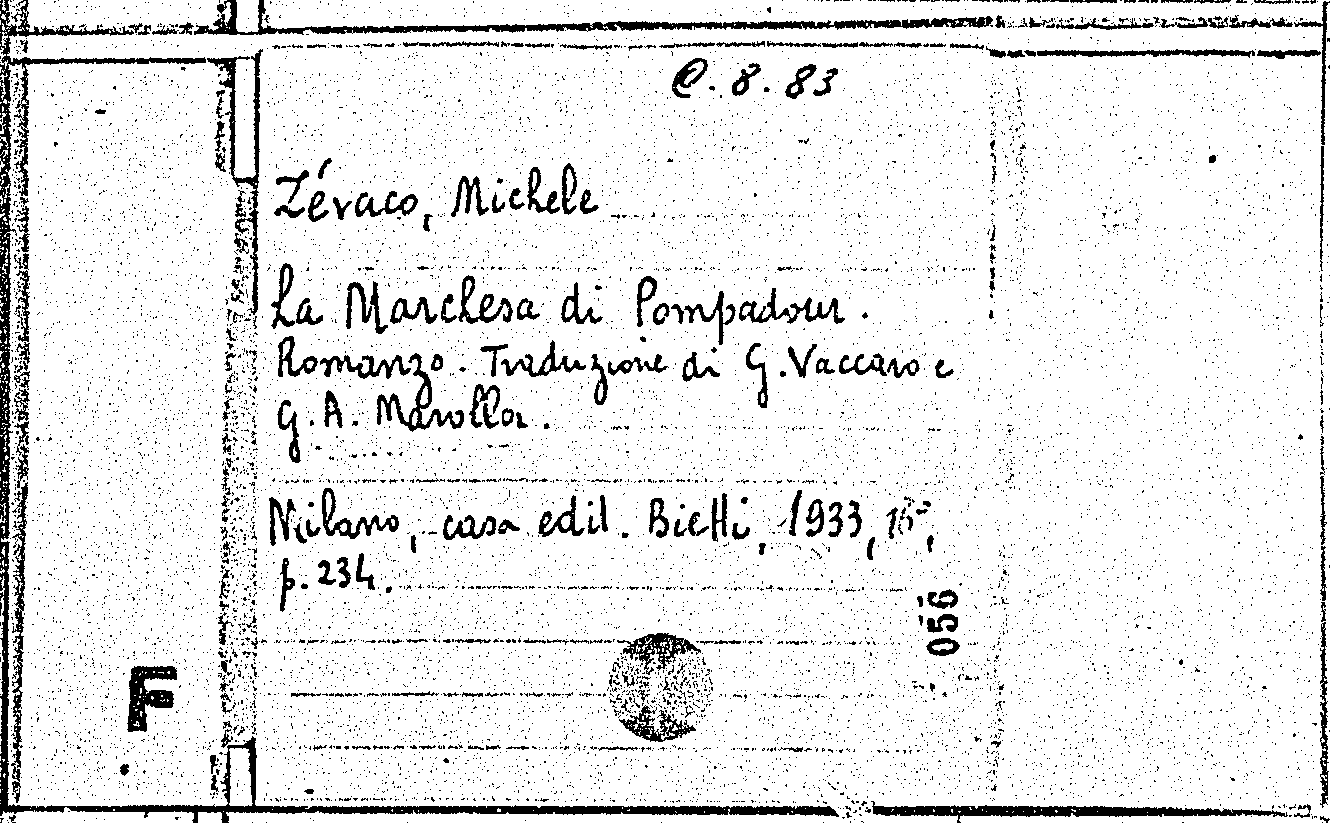 C. 8. 83
Zévaco, Michele
La Marchesa di Pompadour.
Romanzo. Traduzione di G. Vaccaro e
G. A. Marolla.
Milano, casa edit. Bietti, 1933, 16°,
p. 234.
056
F